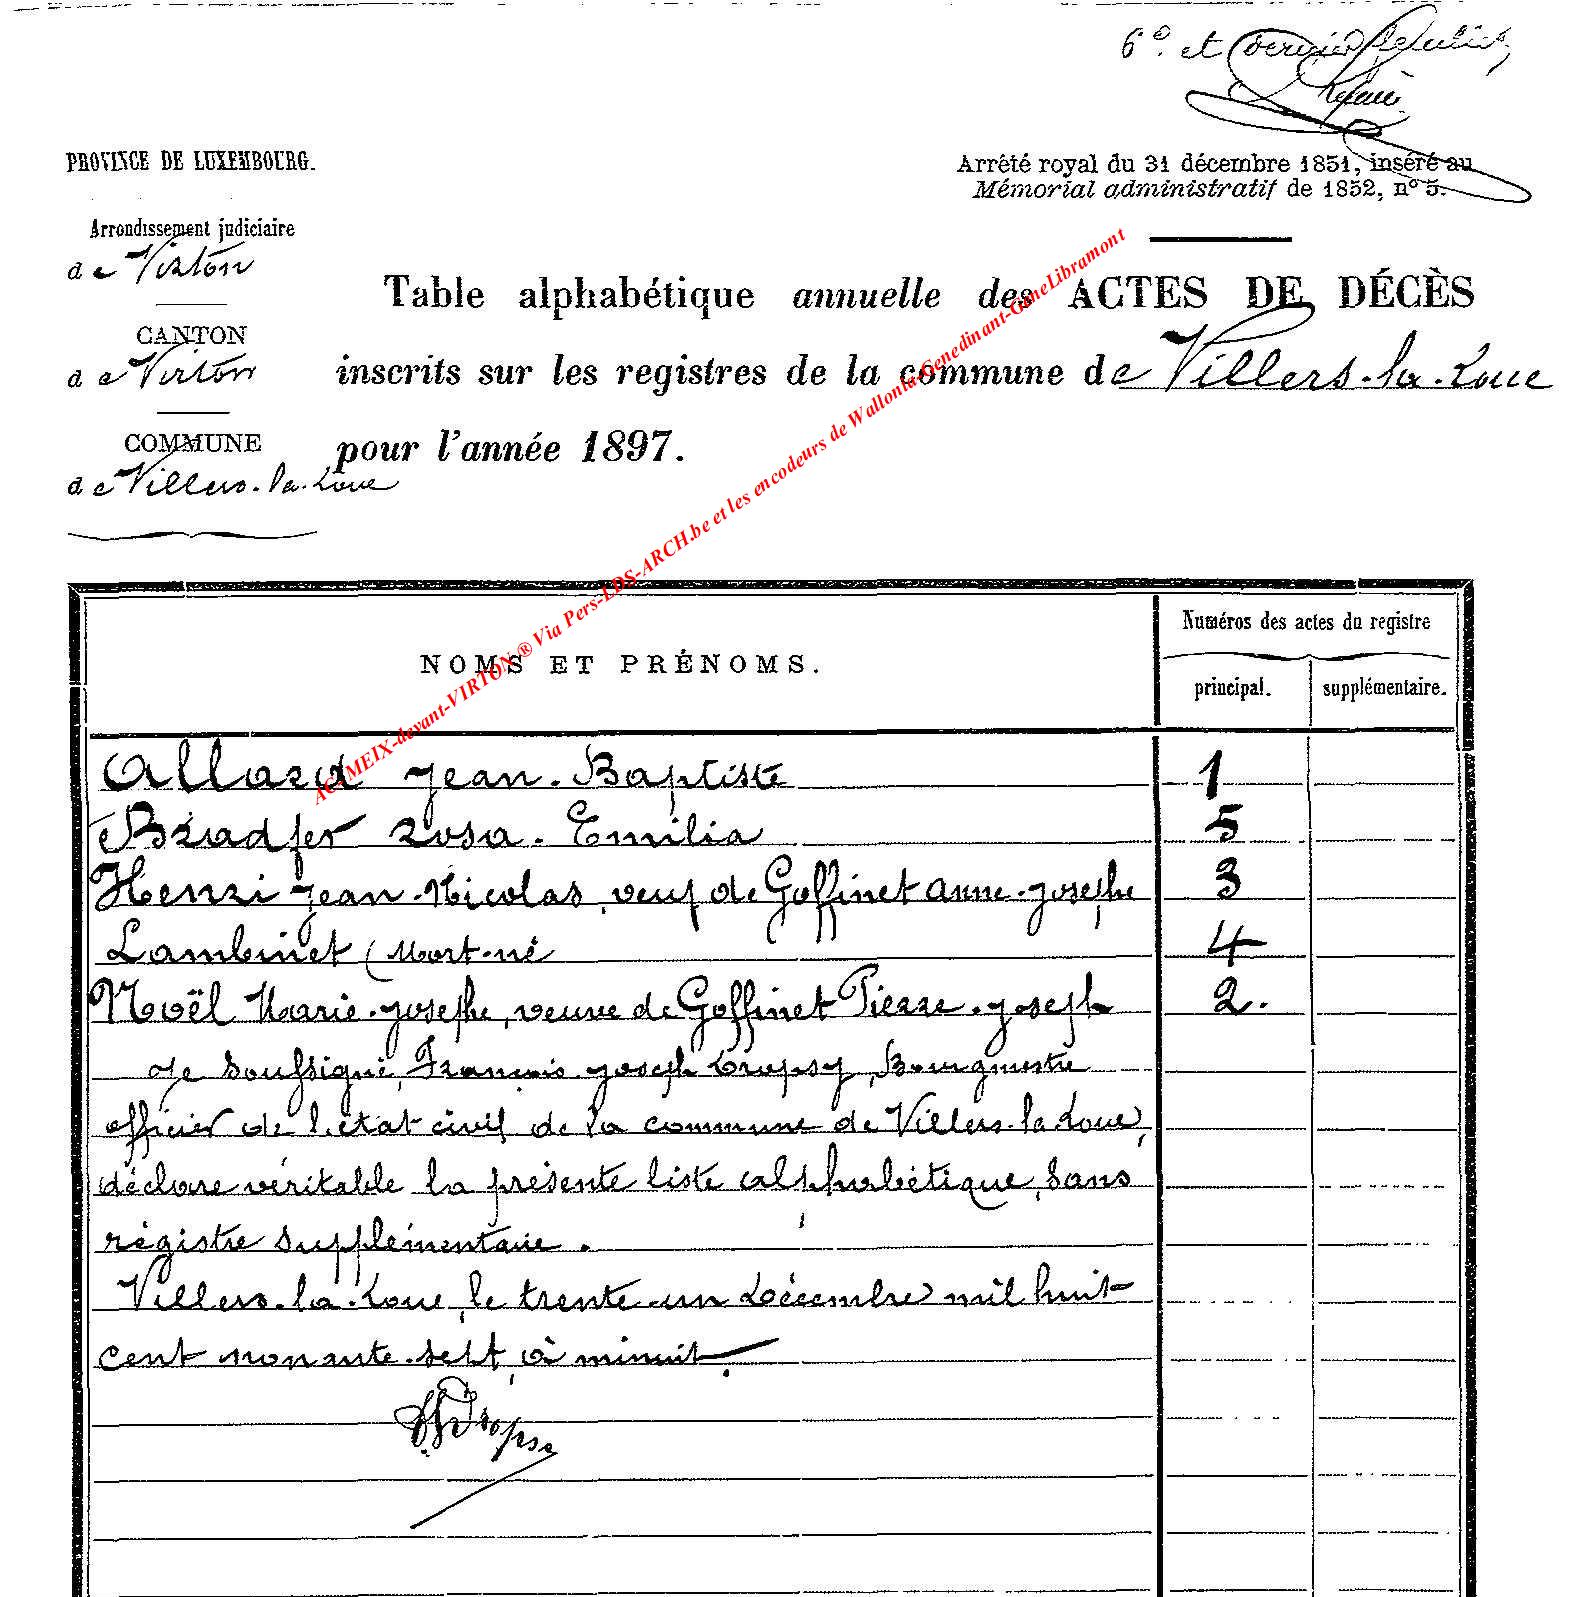 6e et dernier feuillet
PROVINCE DE LUXEMBOURG.
Arrêté royal du 31 décembre 1851, inséré au
Mémorial administratif de 1852, nº 5.
Arrondissement judiciaire
de Virton
CANTON
de Virton
COMMUNE
de Villers-la-Loue
Table alphabétique annuelle des ACTES DE DÉCÈS
inscrits sur les registres de la commune de Villers-la-Loue
pour l'année 1897.
AC-MEIX-devant-VIRTON ® Via Pers-LDS-ARCH.be et les encodeurs de Wallonia-Genedinant-GeneLibramont
NOMS ET PRÉNOMS.
Numéros des actes du registre
principal. supplémentaire.
Allard Jean-Baptiste 1
Bradfer Rosa-Emilia 5
Henri Jean-Nicolas, veuf de Goffinet Anne-Josephe 3
Lambinet (Mort-né 4
Noël Marie-Josephe, veuve de Goffinet Pierre-Joseph 2.
Je soussigné, François-Joseph Dropsy, Bourgmestre
officier de l'état civil de la commune de Villers-la-Loue,
déclare véritable la présente liste alphabétique, sans
régistre supplémentaire.
Villers-la-Loue, le trente-un Décembre mil huit
cent nonante-sept, à minuit.